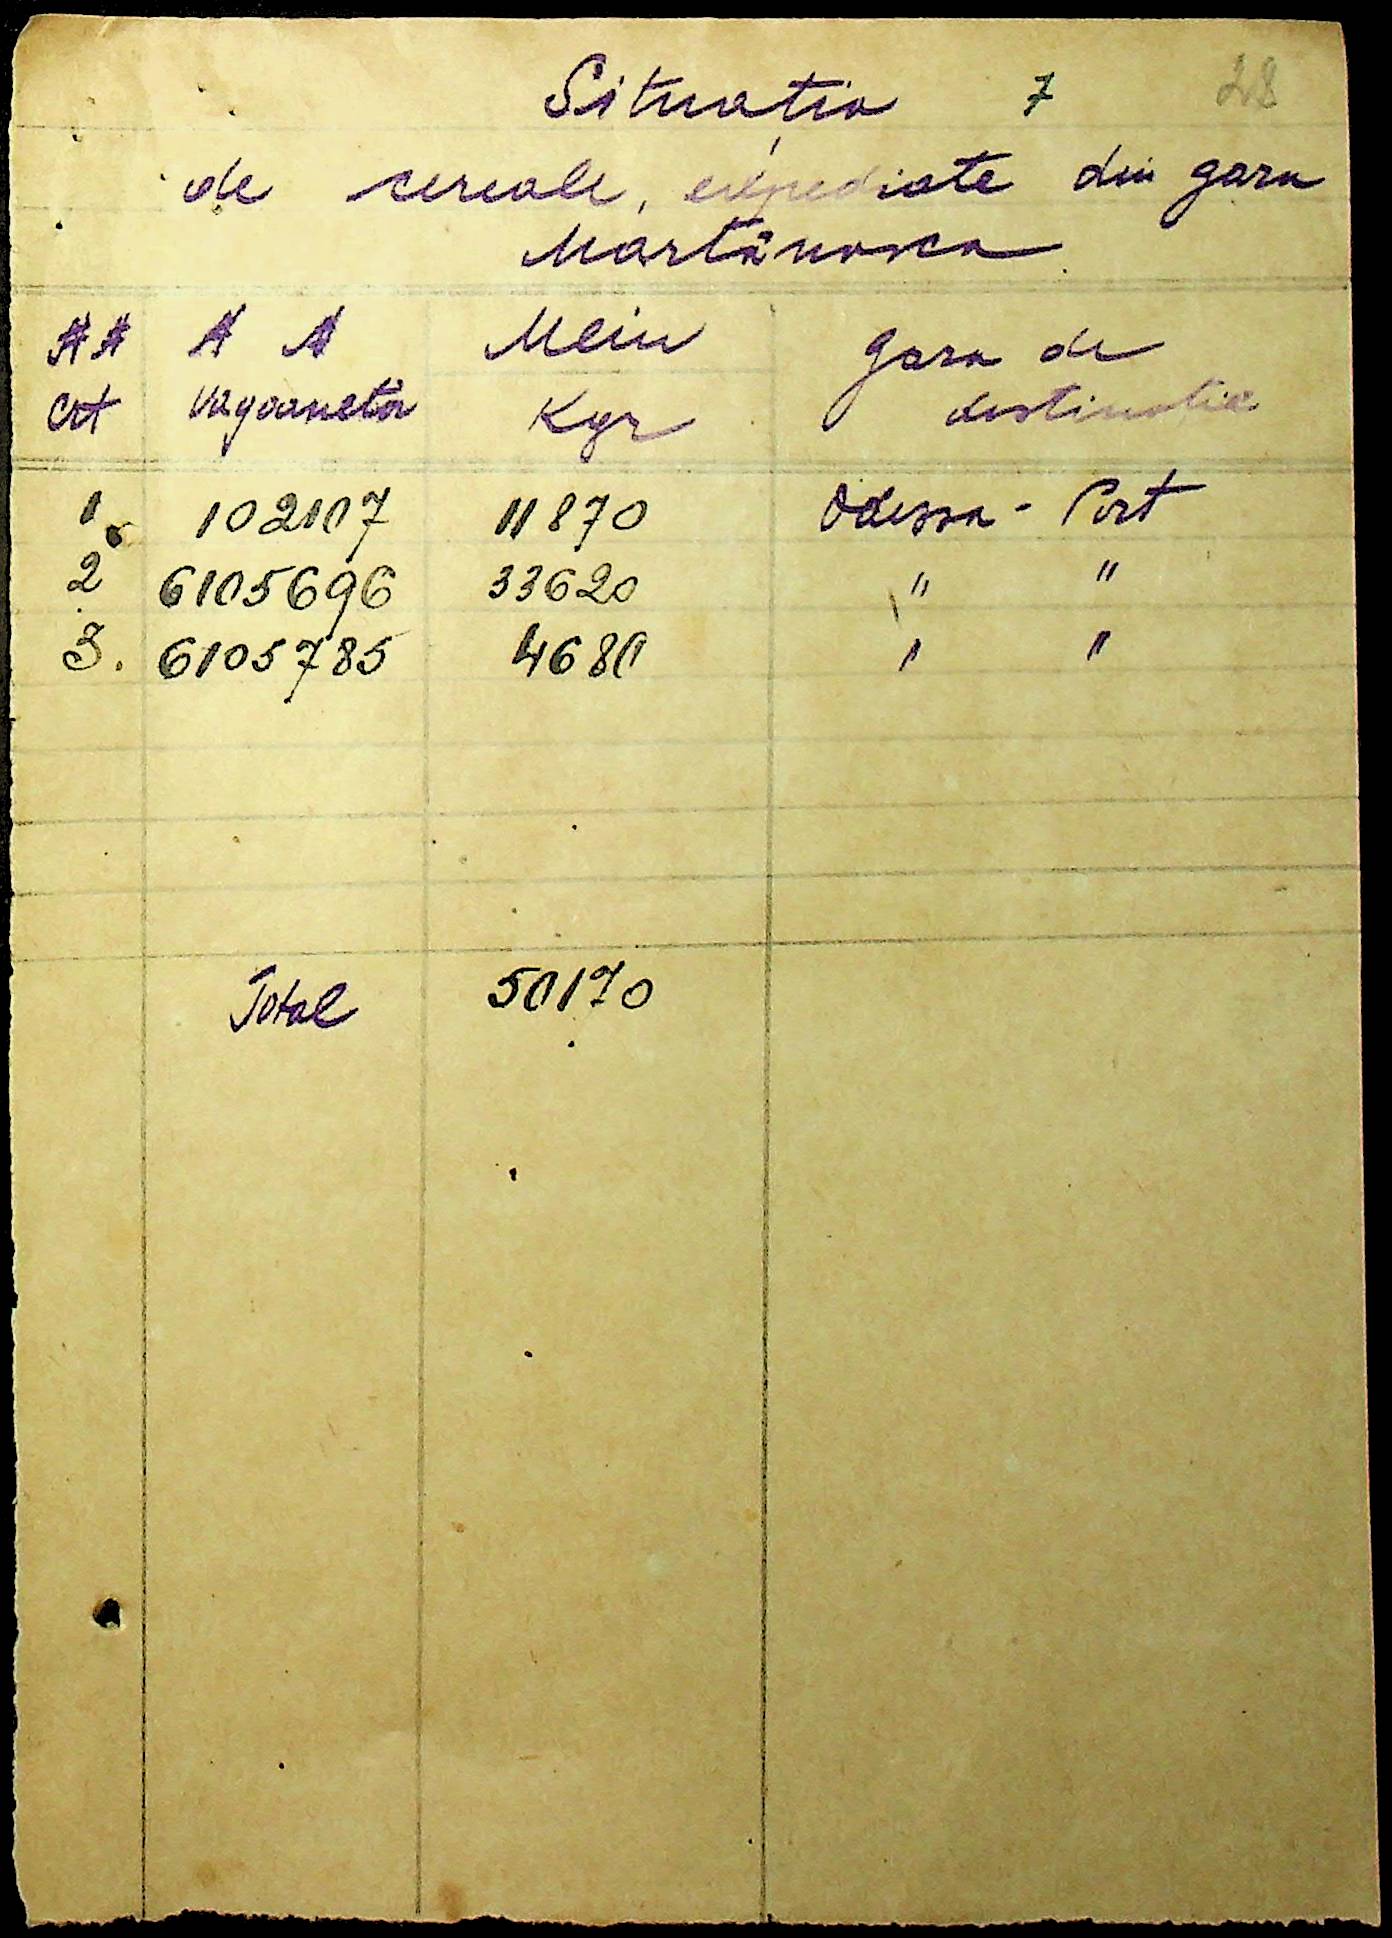 Situația 7 28
de cereale, expediate din gara
Martănosca
№№ № № Meiu gara de
crt vagoanelor Kgr destinatie
1. 102107 11870 Odessa - Port
2 6105696 33620 " "
3. 6105785 4680 " "
Total 50170